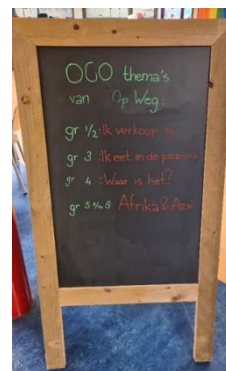 OGO thema's
van Op Weg:
gr 1/2: Ik verkoop ijs
gr 3 : Ik eet in de pizzeria
gr 4 : Waar is het?
gr 5 t/m 8 Afrika & Azië